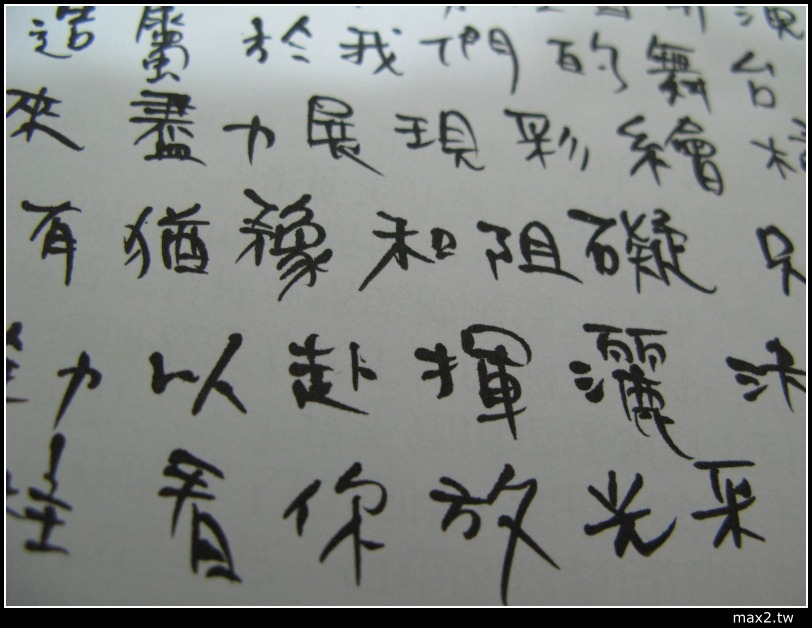 造屬於我們的舞台
來盡力展現彩繪
有猶豫和阻礙 只
力以赴揮灑
看你放光采
max2.tw